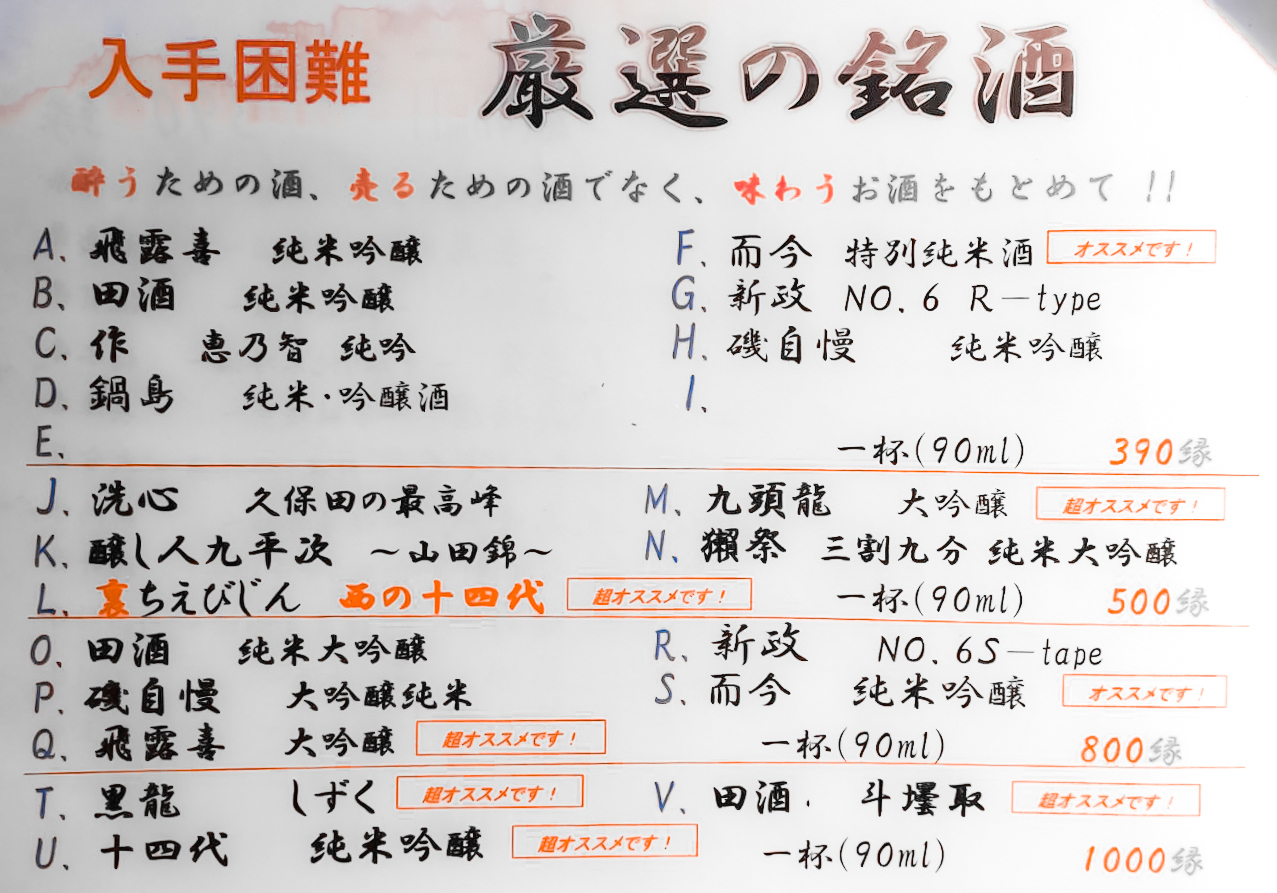 入手困難 厳選の銘酒
酔うための酒、売るための酒でなく、味わうお酒をもとめて !!
A、飛露喜 純米吟醸
B、田酒 純米吟醸
C、作 恵乃智 純吟
D、鍋島 純米・吟醸酒
E、
F、而今 特別純米酒 オススメです!
G、新政 NO.6 R—type
H、磯自慢 純米吟醸
I、
一杯(90ml) 390縁
J、洗心 久保田の最高峰
K、醸し人九平次 〜山田錦〜
L、裏ちえびじん 西の十四代 超オススメです!
M、九頭龍 大吟醸 超オススメです!
N、獺祭 三割九分 純米大吟醸
一杯(90ml) 500縁
O、田酒 純米大吟醸
P、磯自慢 大吟醸純米
Q、飛露喜 大吟醸 超オススメです!
R、新政 NO.6S—tape
S、而今 純米吟醸 オススメです!
一杯(90ml) 800縁
T、黒龍 しずく 超オススメです!
U、十四代 純米吟醸 超オススメです!
V、田酒. 斗壜取 超オススメです!
一杯(90ml) 1000縁